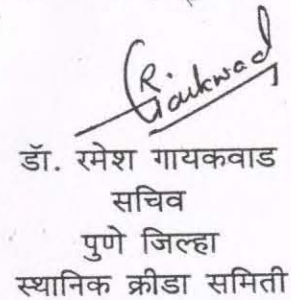 RGaikwad
डॉ. रमेश गायकवाड
सचिव
पुणे जिल्हा
स्थानिक क्रीडा समिती